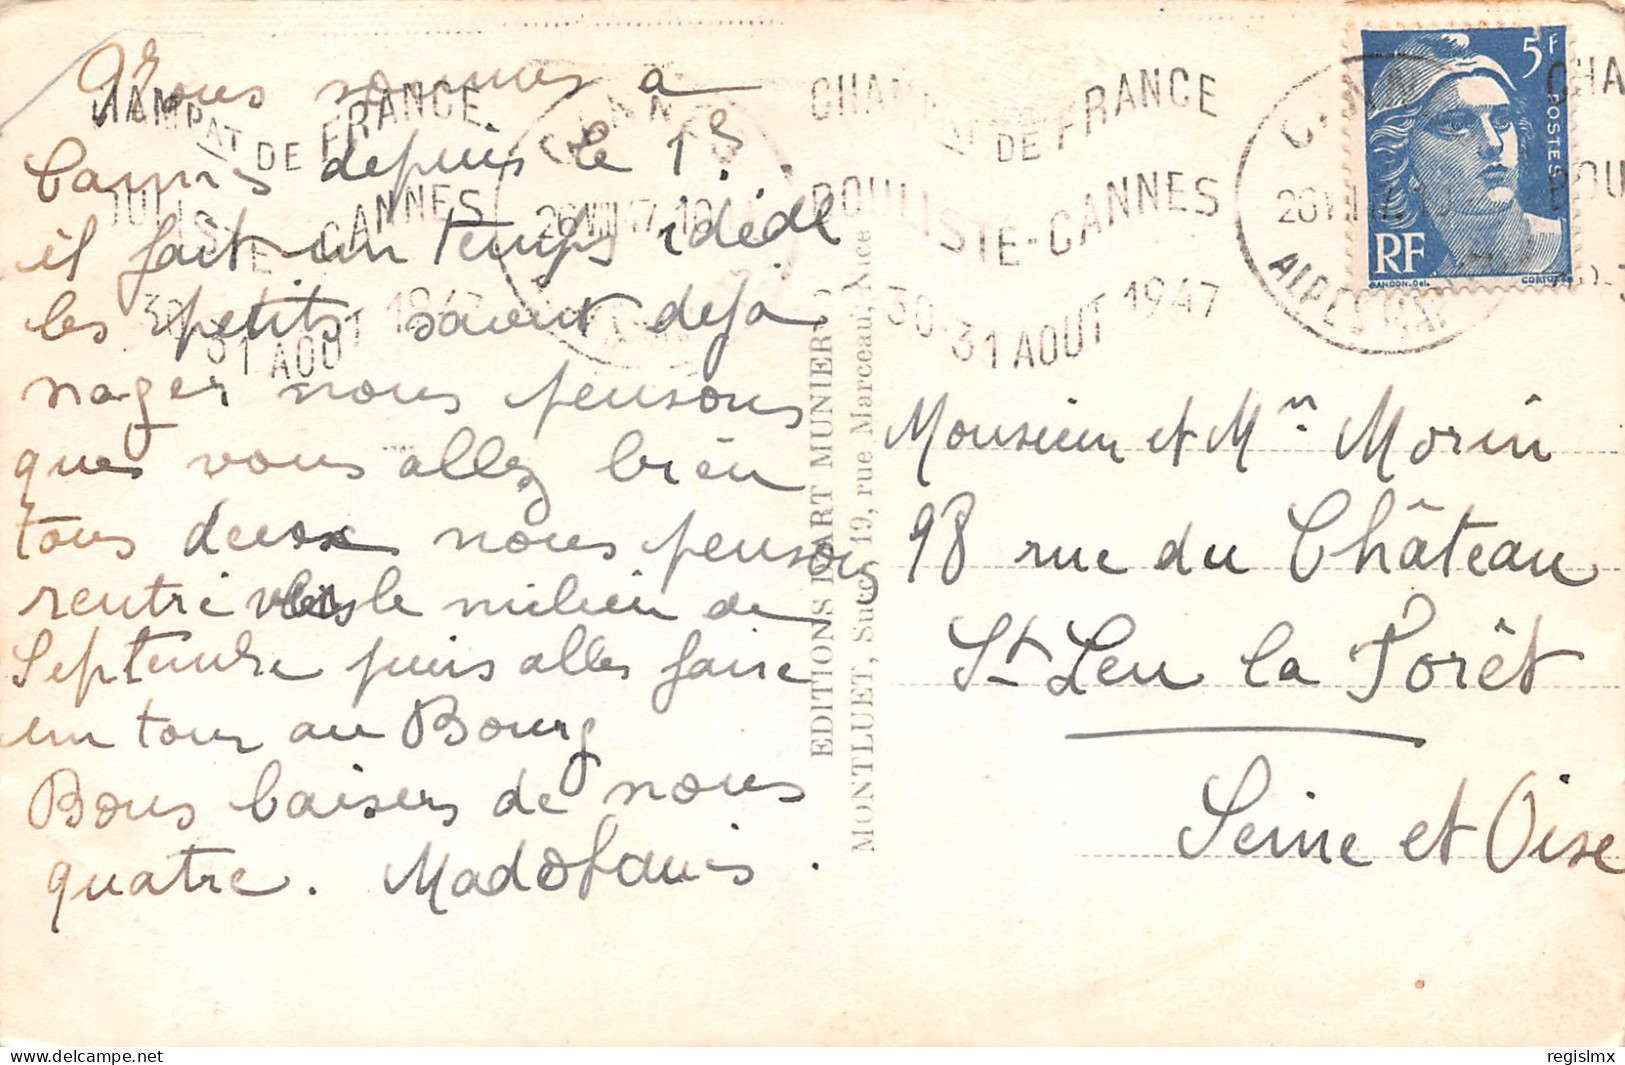 Nous sommes à
Cannes depuis le 1er.
il fait un temps idéal
les petits savent deja
nager nous pensons
ques vous allez bien
tous deux nous pensons
rentré vers le milieu de
Septembre puis aller faire
un tour au Bourg
Bons baisers de nous
quatre. Mado
CHAMPAT DE FRANCE
BOULISTE-CANNES
30-31 AOUT 1947
CANNES
CHAMPAT DE FRANCE
BOULISTE-CANNES
30-31 AOUT 1947
EDITIONS D'ART MUNIER
MONTLUET, Succ 19, rue Marceau, Nice
CANNES
ALPES MMES
5F
POSTES
RF
GANDON.Del.
CORTOT
CHA
30-3
Monsieur et Mm Morin
98 rue du Château
St Leu la Forêt
Seine et Oise
regislmx
delcampe.net